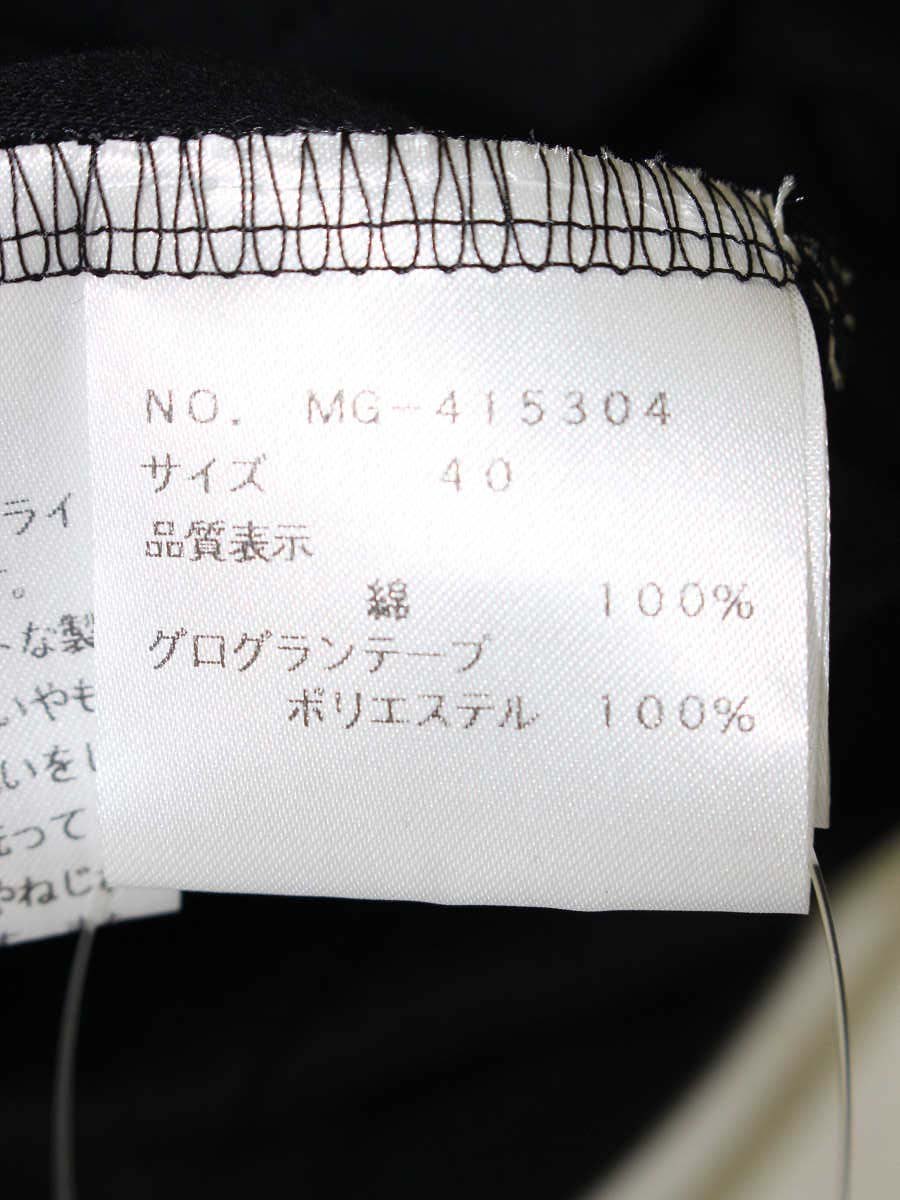 NO. MG-415304
サイズ 40
品質表示
綿 100%
グログランテープ
ポリエステル 100%
ライ
。
な製
いやも
いをし
って
やねじ